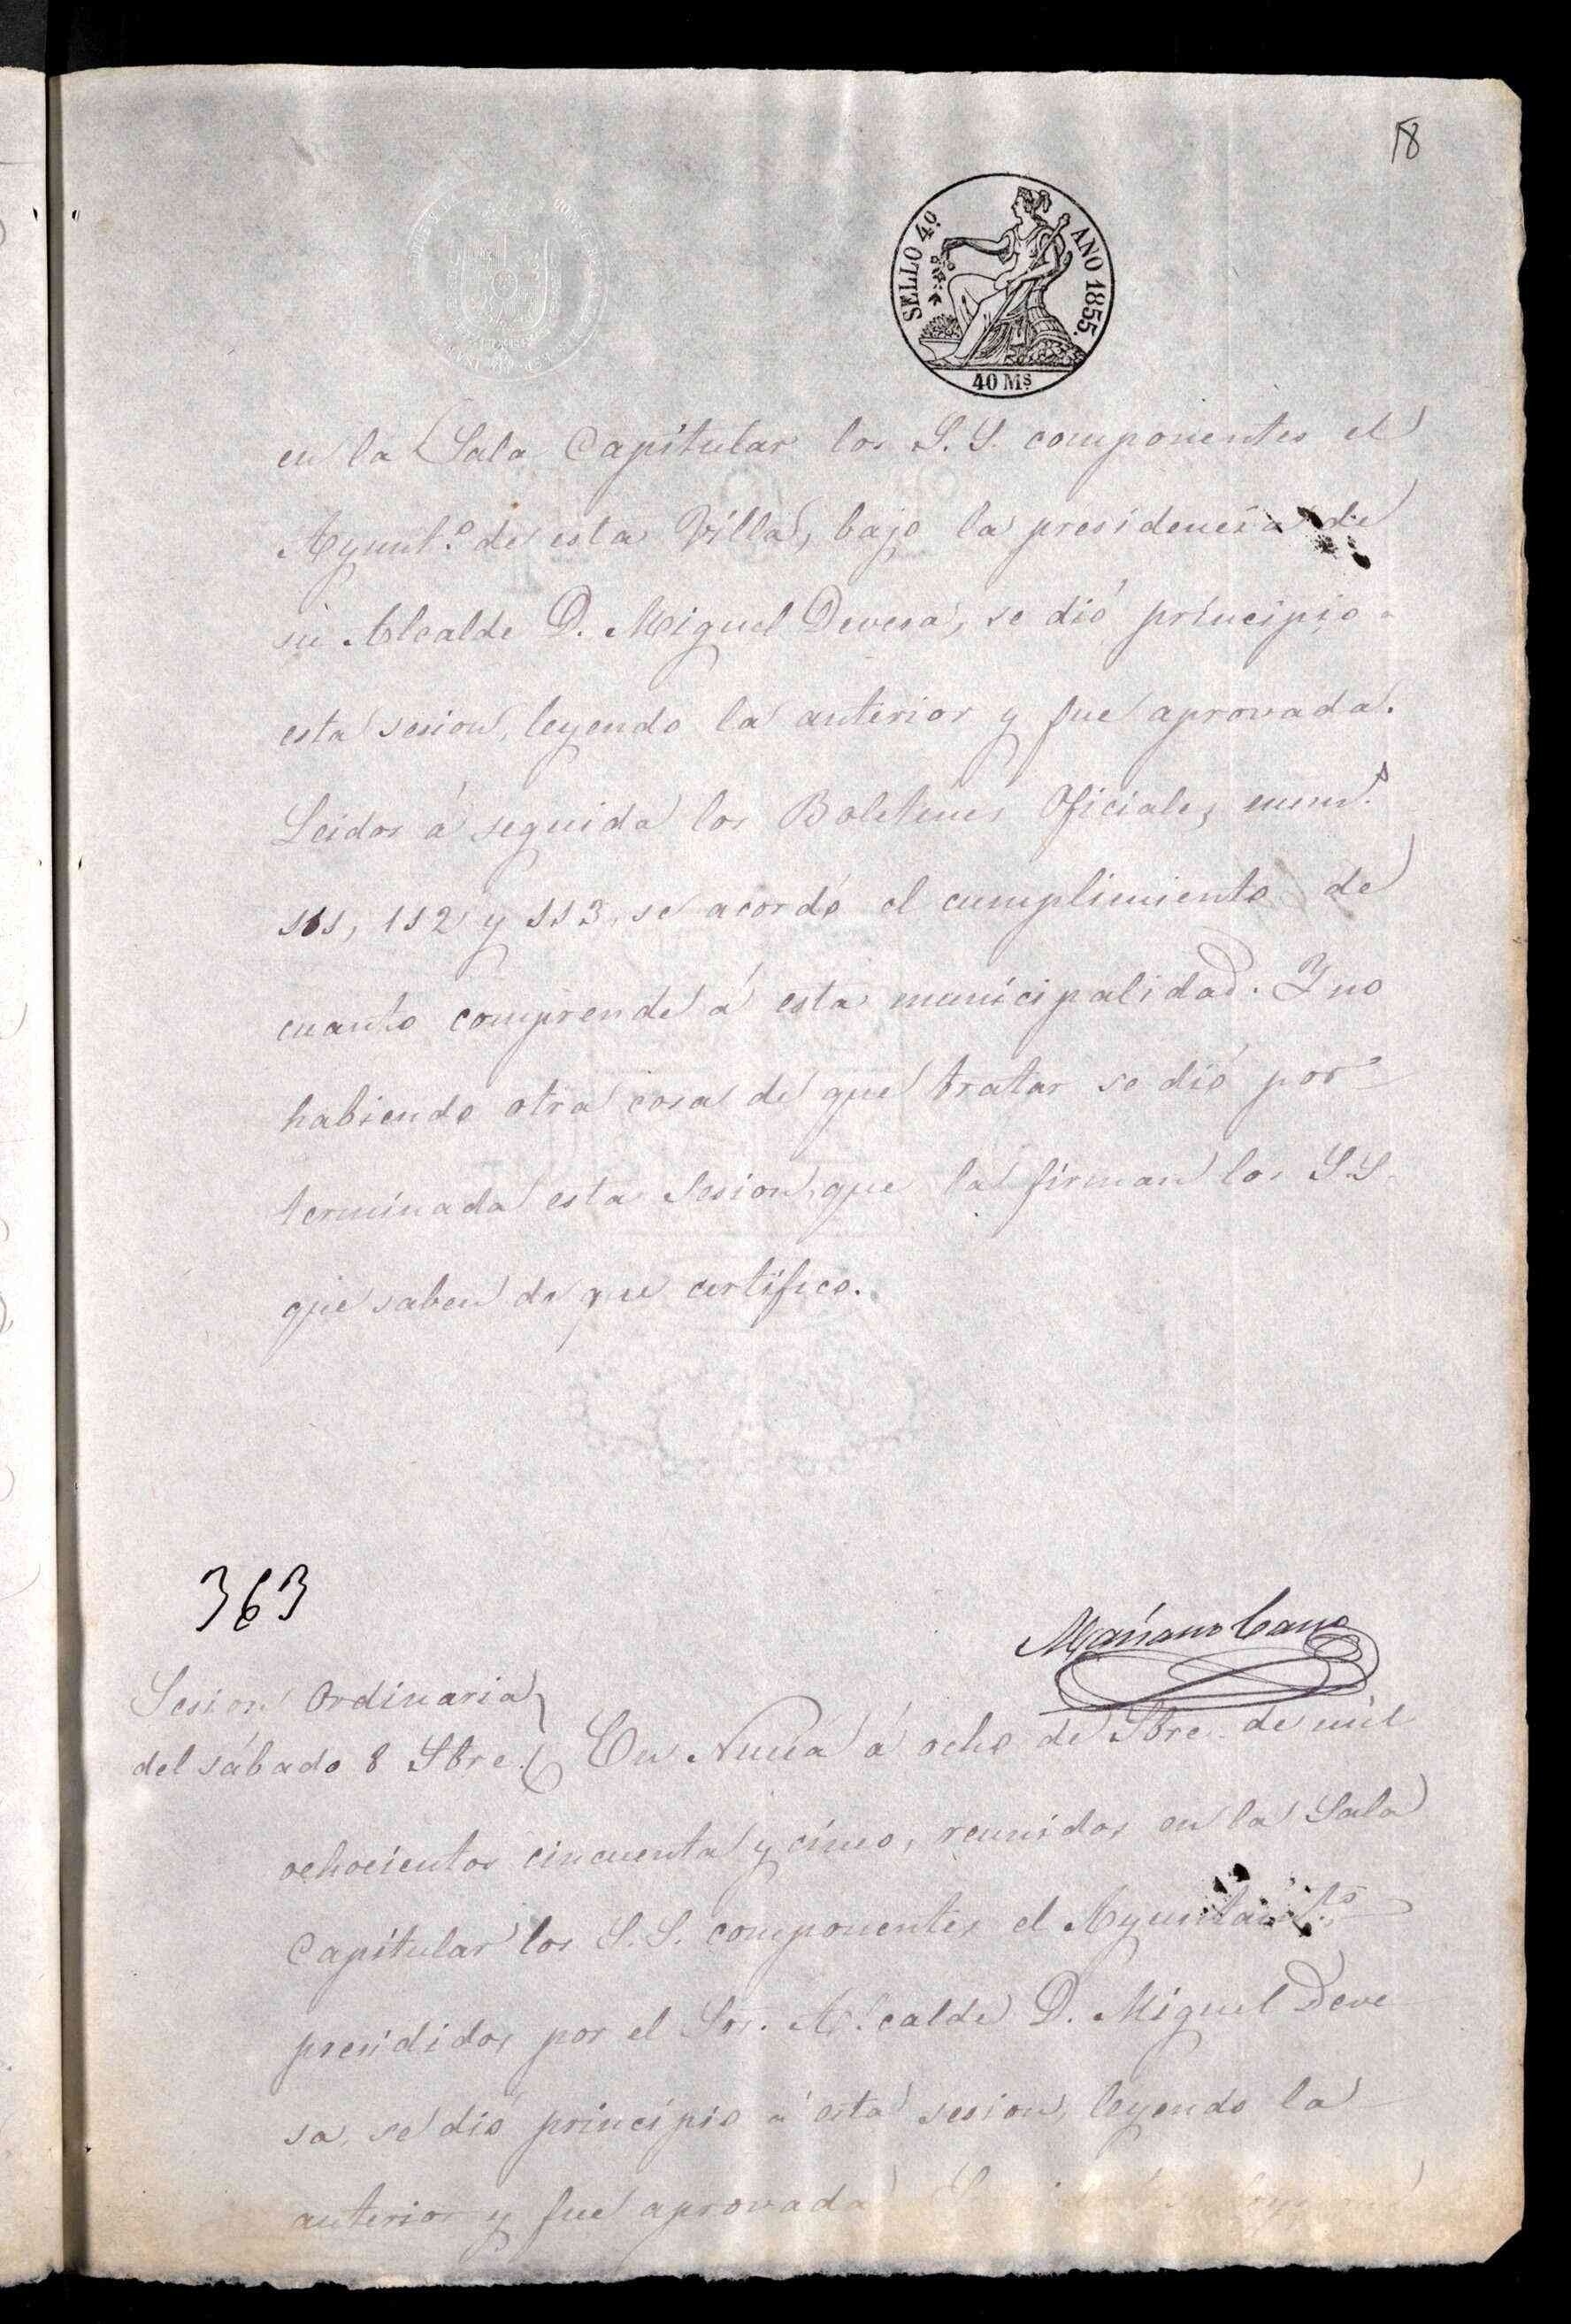 18
SELLO 4º AÑO 1855.
40 Ms
en la Sala Capitular los S. S. componentes el
Ayuntº de esta Villa, bajo la presidencia de
su Alcalde D. Miguel Devesa, se dió principio a
esta sesion, leyendo la anterior y fue aprovada.
Leidos á seguida los Boletines Oficiales, numˢ
111, 112 y 113, se acordó el cumplimiento de
cuanto comprende á esta municipalidad. Y no
habiendo otra cosa de que tratar se dió por
terminada esta Sesion, que la firman los S.S.
que saben de que certifico.
363
Mariano Cano
Sesion Ordinaria
del sábado 8 Sbre.
En Nucia á ocho de Sbre. de mil
ochocientos cincuenta y cinco, reunidos en la Sala
Capitular los S. S. componentes el Ayuntamtº
presididos por el Sor. Alcalde D. Miguel Deve
sa, se dió principio á esta sesion, leyendo la
anterior y fue aprovada